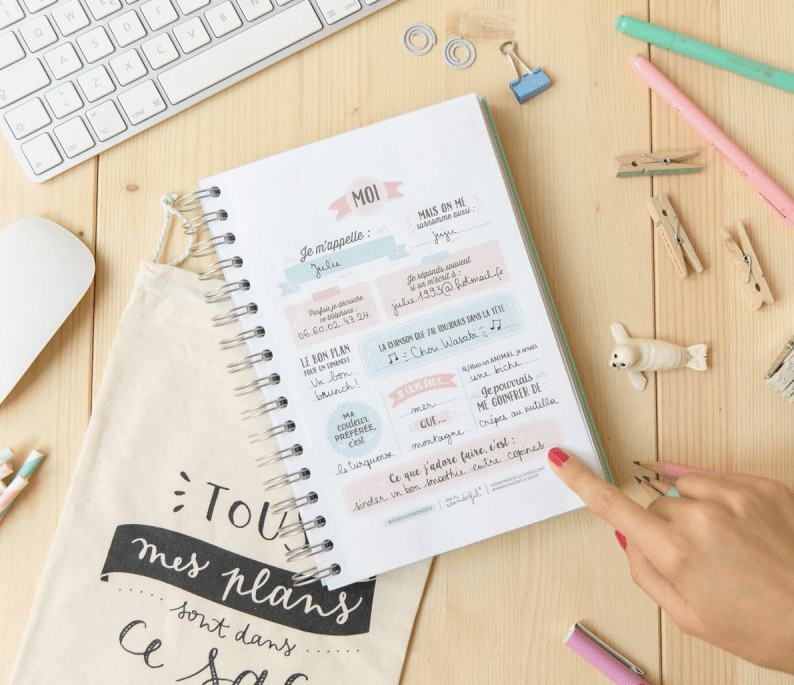 MOI
Je m'appelle :
Julie
MAIS ON ME
surnomme aussi :
juju
Parfois je décroche
ce téléphone :
06.60.02.43.24.
Je réponds souvent
si on m'écrit à :
julie.1993@hotmail.fr
LA CHANSON QUE J'AI TOUJOURS DANS LA TÊTE
Chou Wasabi
LE BON PLAN
POUR UN DIMANCHE
Un bon
brunch!
MA
couleur
PRÉFÉRÉE,
c'est
le turquoise
JE SUIS PLUS
mer
QUE...
montagne
Si j'étais un ANIMAL, je serais
une biche
Je pourrais
ME GOINFRER DE :
crêpes au nutella
Ce que j'adore faire, c'est :
siroter un bon smoothie entre copines
mr. wonderful*
TOUS
mes plans
sont dans
ce sac